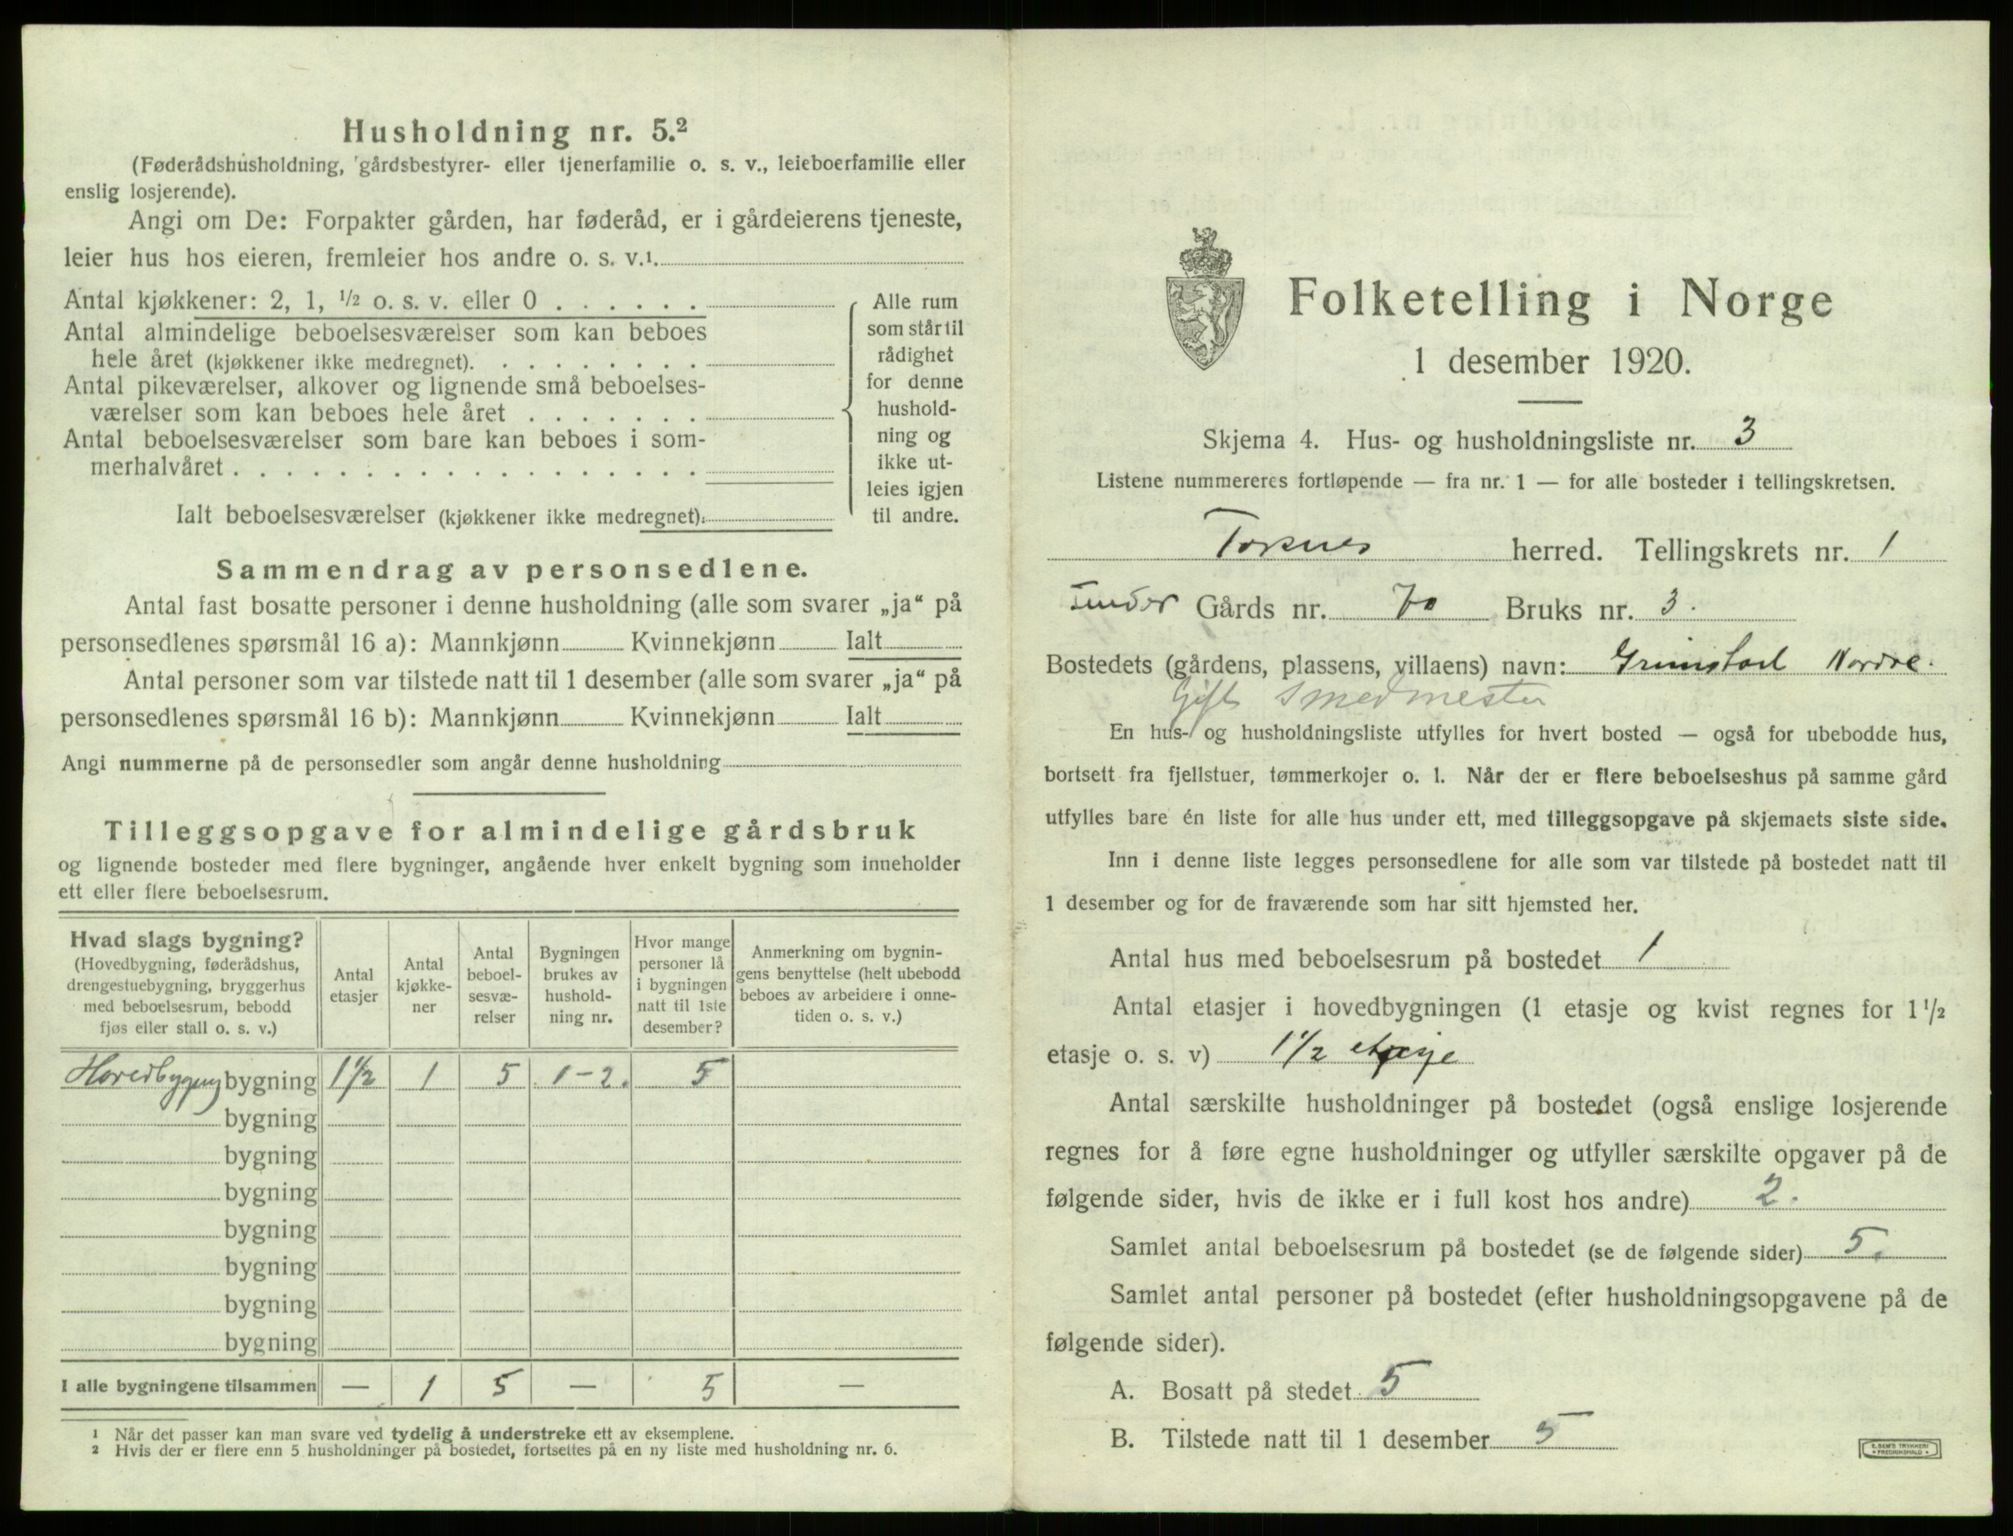 Husholdning nr. 5.²
(Føderådshusholdning, gårdsbestyrer- eller tjenerfamilie o. s. v., leieboerfamilie eller
enslig losjerende).
Angi om De: Forpakter gården, har føderåd, er i gårdeierens tjeneste,
leier hus hos eieren, fremleier hos andre o. s. v.¹
Antal kjøkkener: 2, 1, ½ o. s. v. eller 0 . . . . . .
Antal almindelige beboelsesværelser som kan beboes
hele året (kjøkkener ikke medregnet). . . . . . . . .
Antal pikeværelser, alkover og lignende små beboelses-
værelser som kan beboes hele året . . . . . . .
Antal beboelsesværelser som bare kan beboes i som-
merhalvåret . . . . . . . . . . . . . . . . .
Ialt beboelsesværelser (kjøkkener ikke medregnet):
Alle rum
som står til
rådighet
for denne
hushold-
ning og
ikke ut-
leies igjen
til andre.
Sammendrag av personsedlene.
Antal fast bosatte personer i denne husholdning (alle som svarer „ja“ på
personsedlenes spørsmål 16 a): Mannkjønn Kvinnekjønn Ialt
Antal personer som var tilstede natt til 1 desember (alle som svarer „ja“ på
personsedlenes spørsmål 16 b): Mannkjønn Kvinnekjønn Ialt
Angi nummerne på de personsedler som angår denne husholdning
Tilleggsopgave for almindelige gårdsbruk
og lignende bosteder med flere bygninger, angående hver enkelt bygning som inneholder
ett eller flere beboelsesrum.
Hvad slags bygning?
(Hovedbygning, føderådshus,
drengestuebygning, bryggerhus
med beboelsesrum, bebodd
fjøs eller stall o. s. v.)
Antal
etasjer
Antal
kjøkke-
ner
Antal
beboel-
sesvæ-
relser
Bygningen
brukes av
hushold-
ning nr.
Hvor mange
personer lå
i bygningen
natt til 1ste
desember?
Anmerkning om bygnin-
gens benyttelse (helt ubebodd
beboes av arbeidere i onne-
tiden o. s. v.)
bygning 1½ 1 5 1-2. 5
bygning
bygning
bygning
bygning
bygning
bygning
bygning
I alle bygningene tilsammen — 1 5 — 5 —
1 Når det passer kan man svare ved tydelig å understreke ett av eksemplene.
2 Hvis der er flere enn 5 husholdninger på bostedet, fortsettes på en ny liste med husholdning nr. 6.
Folketelling i Norge
1 desember 1920.
Skjema 4. Hus- og husholdningsliste nr. 3
Listene nummereres fortløpende — fra nr. 1 — for alle bosteder i tellingskretsen.
Torsnes herred. Tellingskrets nr. 1
under Gårds nr. 70 Bruks nr. 3.
Bostedets (gårdens, plassens, villaens) navn: Grimstad Nordre.
Gift Smedmester
En hus- og husholdningsliste utfylles for hvert bosted — også for ubebodde hus,
bortsett fra fjellstuer, tømmerkojer o. l. Når der er flere beboelseshus på samme gård
utfylles bare én liste for alle hus under ett, med tilleggsopgave på skjemaets siste side.
Inn i denne liste legges personsedlene for alle som var tilstede på bostedet natt til
1 desember og for de fraværende som har sitt hjemsted her.
Antal hus med beboelsesrum på bostedet 1
Antal etasjer i hovedbygningen (1 etasje og kvist regnes for 1½
etasje o. s. v) 1½ etasje
Antal særskilte husholdninger på bostedet (også enslige losjerende
regnes for å føre egne husholdninger og utfyller særskilte opgaver på de
følgende sider, hvis de ikke er i full kost hos andre) 2.
Samlet antal beboelsesrum på bostedet (se de følgende sider) 5.
Samlet antal personer på bostedet (efter husholdningsopgavene på de
følgende sider).
A. Bosatt på stedet 5
B. Tilstede natt til 1 desember 5
E. SEM'S TRYKKERI
FREDRIKSHALD